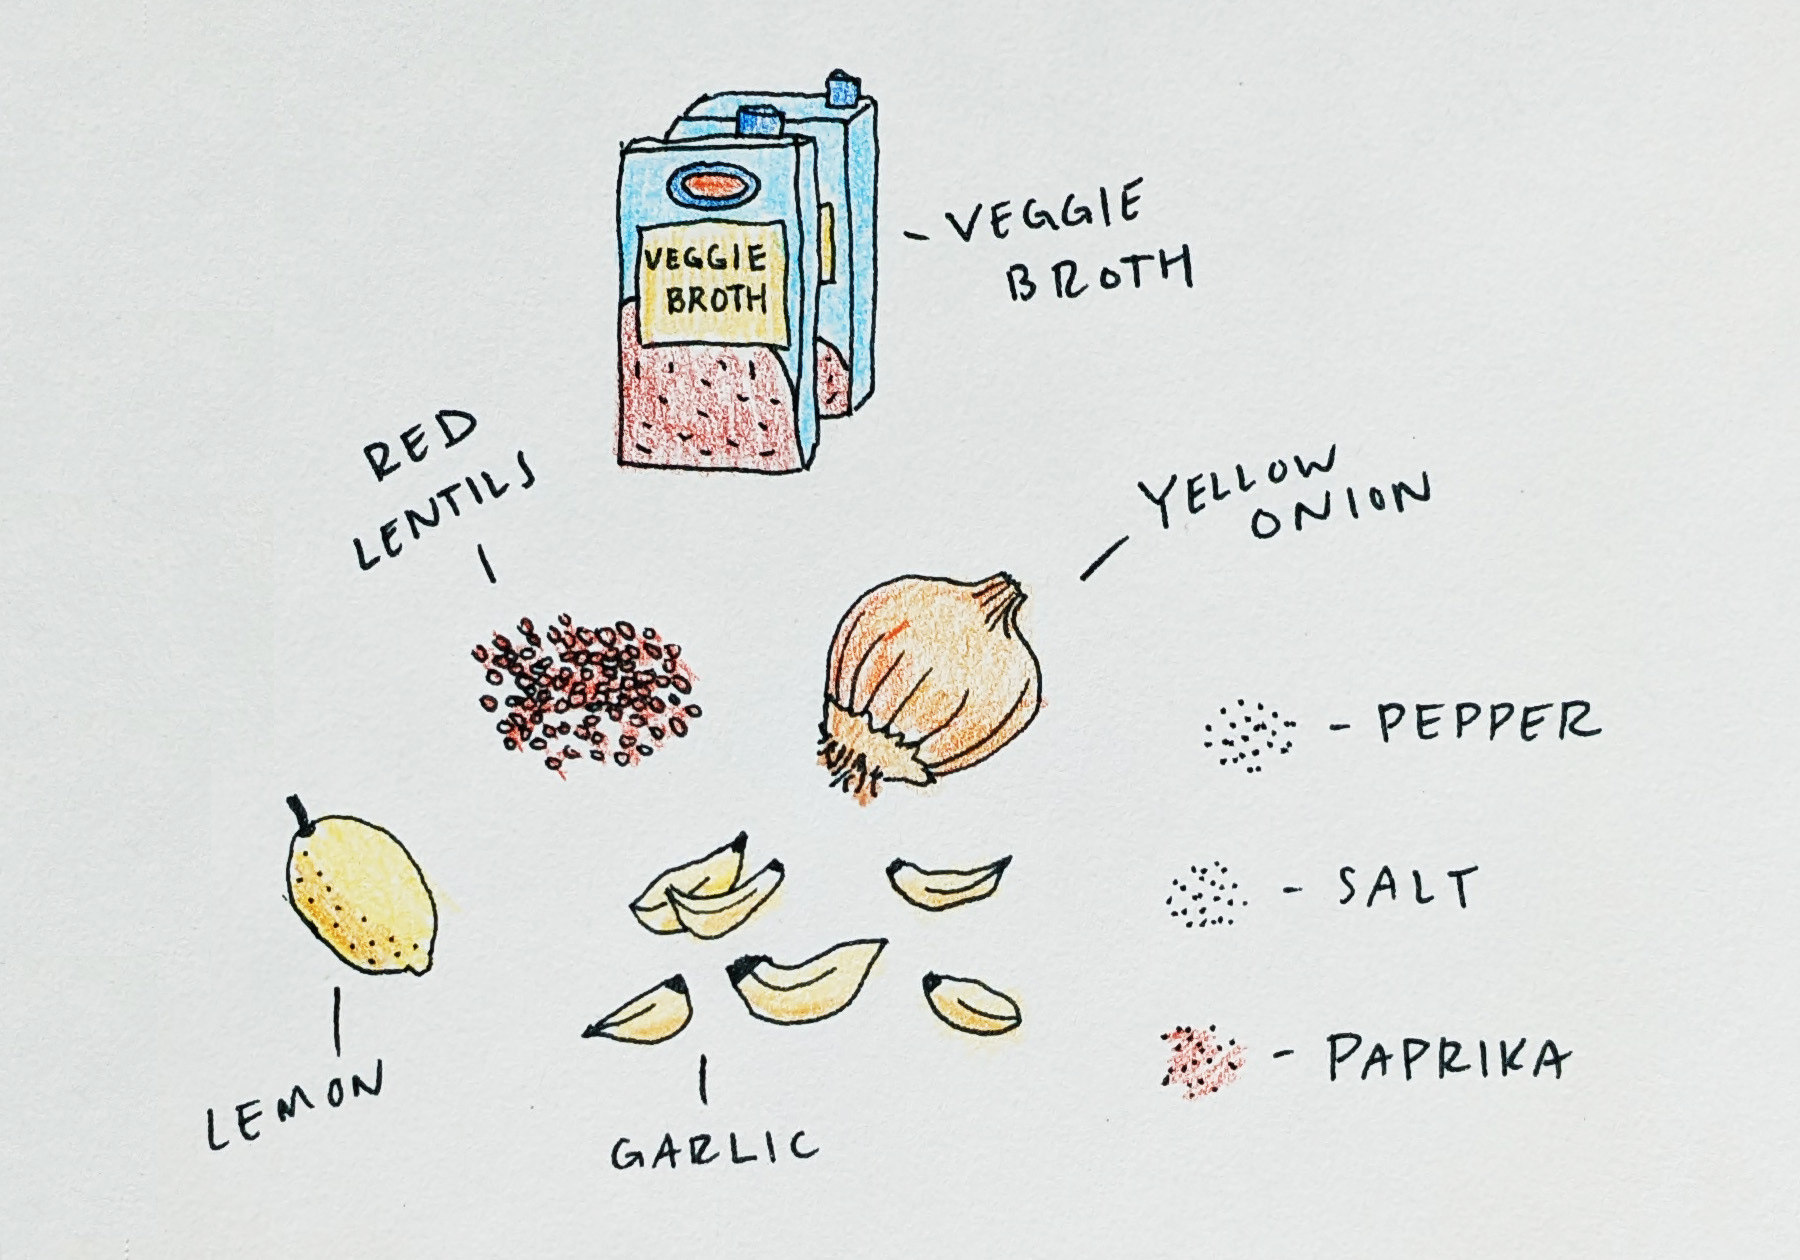 VEGGIE
BROTH
- VEGGIE
BROTH
RED
LENTILS
YELLOW
ONION
- PEPPER
- SALT
- PAPRIKA
LEMON
GARLIC